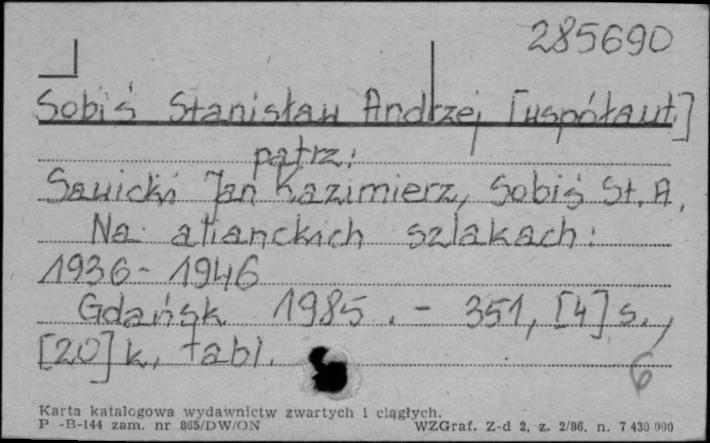 285690
Sobiś Stanisław Andrzej [współaut.]
patrz:
Sawicki Jan Kazimierz, Sobiś St. A.
Na alianckich szlakach:
1936 - 1946
Gdańsk 1985. - 351, [4] s.,
[20] k. tabl.
6
Karta katalogowa wydawnictw zwartych i ciągłych.
P -B-144 zam. nr 865/DW/ON WZGraf. Z-d 2, z. 2/86. n. 7 430 000